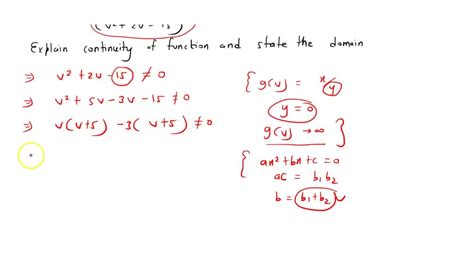 (v²+2v-15)
Explain continuity of function and state the domain
⇒ v² + 2v - 15 ≠ 0
⇒ v² + 5v - 3v - 15 ≠ 0
⇒ v(v+5) - 3(v+5) ≠ 0
{ g(v) = x/y
y = 0
g(v) → ∞ }
{ ax² + bx + c = 0
ac = b₁b₂
b = b₁+b₂